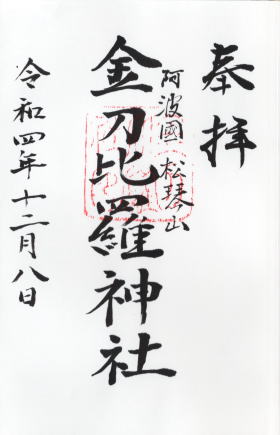 奉拝
阿波國 松琴山
金刀比羅神社
令和四年十二月八日